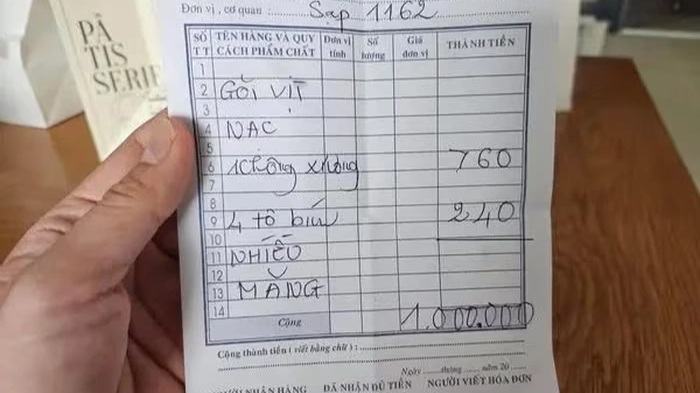 PÂ
TIS
SERIE
Đơn vị, cơ quan : Sạp 1162
SỐ TT TÊN HÀNG VÀ QUY CÁCH PHẨM CHẤT Đơn vị tính Số lượng Giá đơn vị THÀNH TIỀN
1
2 GỎI VỊT
3
4 NẠC
5
6 không xương 760
7
8
9 4 tô bún 240
10
11 NHIỀU
12
13 MĂNG
14
Cộng 1.000.000
Cộng thành tiền ( viết bằng chữ ) :
Ngày ........ tháng ...... năm 20 ....
NGƯỜI NHẬN HÀNG ĐÃ NHẬN ĐỦ TIỀN NGƯỜI VIẾT HÓA ĐƠN